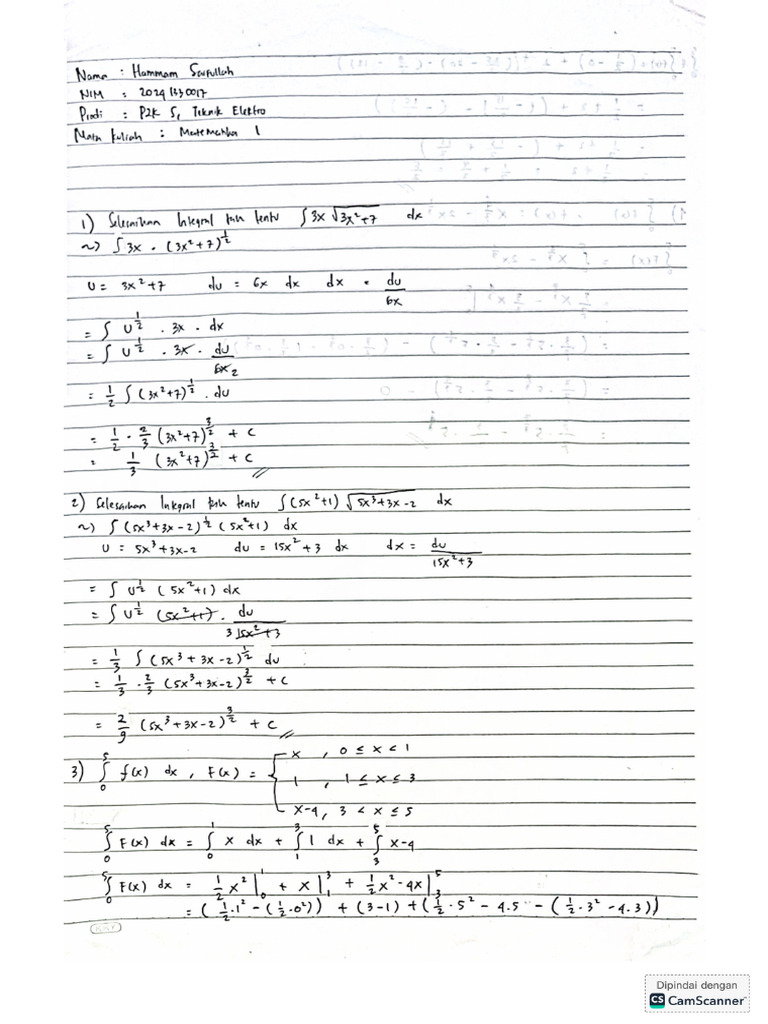 Nama : Hammam Saifullah
NIM : 20241330017
Prodi : P2K S1 Teknik Elektro
Mata kuliah : Matematika 1
1) Selesaikan Integral tak tentu ∫ 3x √3x²+7 dx
~) ∫ 3x . (3x²+7)^½
U = 3x²+7 du = 6x dx dx = du/6x
= ∫ U^½ . 3x . dx
= ∫ U^½ . 3x . du/6x 2
= ½ ∫ (3x²+7)^½ . du
= ½ . ⅔ (3x²+7)^3/2 + C
= ⅓ (3x²+7)^3/2 + C
2) Selesaikan Integral tak tentu ∫ (5x²+1) √5x³+3x-2 dx
~) ∫ (5x³+3x-2)^½ (5x²+1) dx
U = 5x³+3x-2 du = 15x²+3 dx dx = du/15x²+3
= ∫ U^½ (5x²+1) dx
= ∫ U^½ (5x²+1) . du/3 15x²+3
= ⅓ ∫ (5x³+3x-2)^½ du
= ⅓ . ⅔ (5x³+3x-2)^3/2 + C
= 2/9 (5x³+3x-2)^3/2 + C
3) ∫₀⁵ f(x) dx, F(x) = { x , 0 ≤ x < 1
1 , 1 ≤ x ≤ 3
x-4, 3 < x ≤ 5
∫₀⁵ F(x) dx = ∫₀¹ x dx + ∫₁³ 1 dx + ∫₃⁵ x-4
∫₀⁵ F(x) dx = ½x² |₀¹ + x |₁³ + ½x²-4x |₃⁵
= (½.1² - (½.0²)) + (3-1) + (½.5² - 4.5 - (½.3² - 4.3))
Dipindai dengan
CS CamScanner